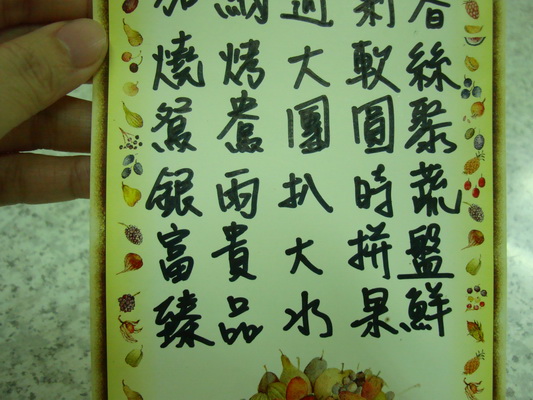 燒烤大軟絲
鴛鴦團圓聚
銀雨扒時蔬
富貴大拼盤
臻品水果鮮